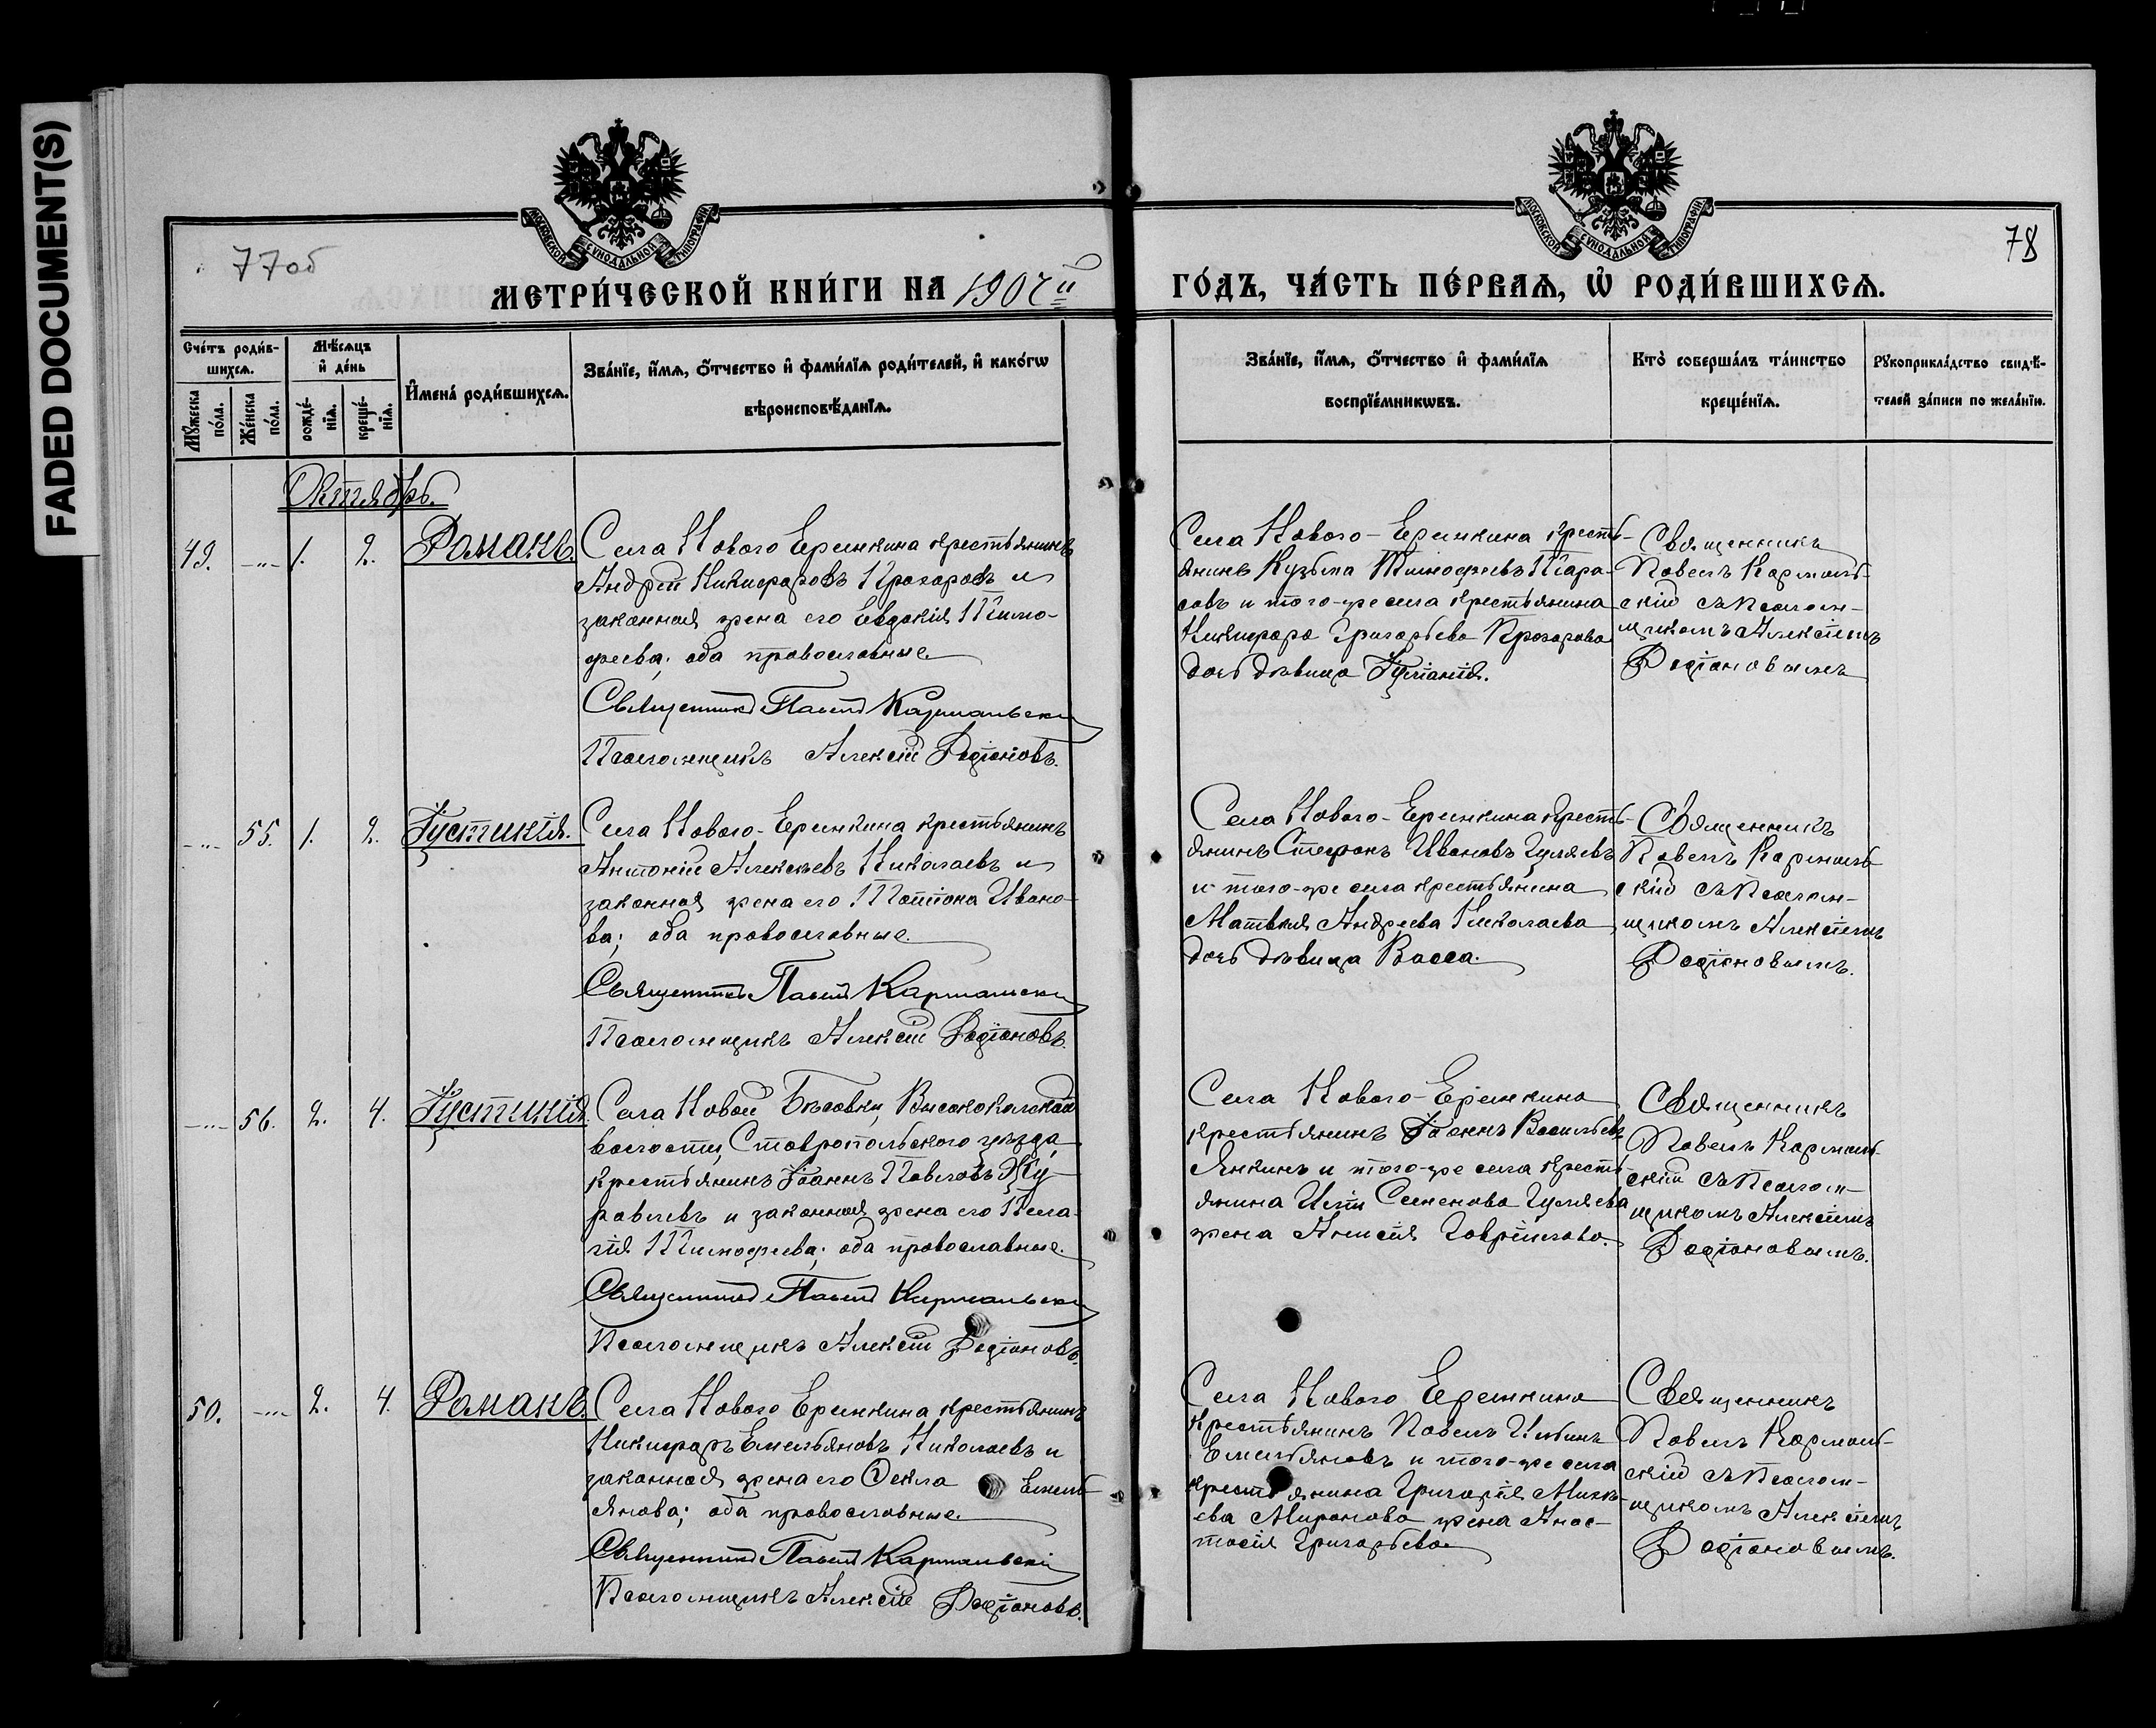 FADED DOCUMENT(S)
77об
78
МОСКОВСКОЙ СѴНОДАЛЬНОЙ ТИПОГРАФІИ
МОСКОВСКОЙ СѴНОДАЛЬНОЙ ТИПОГРАФІИ
МЕТРИ́ЧЕСКОЙ КНИ́ГИ НА
ГО́ДЪ, ЧА́СТЬ ПЕ́РВАѦ, Ѡ҆ РОДИ́ВШИХСѦ.
Сче́тъ роди́в-
шихсѧ.
Мꙋ́жеска по́ла.
Же́нска по́ла.
Мѣ́сѧцъ
и҆ де́нь
рожде́-нїѧ.
креще́-нїѧ.
И҆мена̀ роди́вшихсѧ.
Зва́нїе, и҆́мѧ, ѻ҆́тчество и҆ фами́лїѧ роди́телей, и҆ како́гѡ
вѣроисповѣ́данїѧ.
Зва́нїе, и҆́мѧ, ѻ҆́тчество и҆ фами́лїѧ
воспрїе́мникѡвъ.
Кто̀ соверша́лъ та́инство
креще́нїѧ.
Рꙋкоприкла́дство свидѣ́-
телей за́писи по жела́нїю.
Октябрь.
49. -"- 1. 2. Романъ.
Села Новаго Еремкина крестьянинъ
Андрей Никифоровъ Прохоровъ и
законная жена его Евдокія Тимо-
феева; оба православные.
Священникъ Павелъ Кармальскій
Псаломщикъ Алексій Родіоновъ.
Села Новаго-Еремкина кресть-
янинъ Кузьма Тимофеевъ Тара-
совъ и того-же села крестьянина
Никифора Григорьева Прохорова
дочь дѣвица Іуліанія.
Священникъ
Павелъ Кармаль-
скій съ Псалом-
щикомъ Алексіемъ
Родіоновымъ
-"- 55. 1. 2. Іустинія.
Села Новаго-Еремкина крестьянинъ
Антоній Алексѣевъ Николаевъ и
законная жена его Татіана Ивано-
ва; оба православные.
Священникъ Павелъ Кармальскій
Псаломщикъ Алексій Родіоновъ.
Села Новаго-Еремкина кресть-
янинъ Стефанъ Ивановъ Гуляевъ
и того-же села крестьянина
Матвѣя Андреева Николаева
дочь дѣвица Васса.
Священникъ
Павелъ Кармаль-
скій съ Псалом-
щикомъ Алексіемъ
Родіоновымъ.
-"- 56. 2. 4. Іустинія.
Села Новой Бѣсовки, Высококолковской
волости, Ставропольского уѣзда,
крестьянинъ Іоаннъ Павловъ Жу-
равлевъ и законная жена его Пела-
гія Тимофеева; оба православные.
Священникъ Павелъ Кармальскій
Псаломщикъ Алексій Родіоновъ.
Села Новаго-Еремкина
крестьянинъ Іоаннъ Васильевъ
Янкинъ и того-же села кресть-
янина Иліи Семенова Гуляева
жена Анисія Гавріилова.
Священникъ
Павелъ Кармаль-
скій съ Псалом-
щикомъ Алексіемъ
Родіоновымъ.
50. -"- 2. 4. Романъ.
Села Новаго Еремкина крестьянинъ
Никифоръ Емельяновъ Николаевъ и
законная жена его Ѳекла Емель-
янова; оба православные.
Священникъ Павелъ Кармальскій
Псаломщикъ Алексій Родіоновъ.
Села Новаго Еремкина
крестьянинъ Павелъ Ильинъ
Емельяновъ и того-же села
крестьянина Григорія Михѣ-
ева Миронова жена Анас-
тасія Григорьева.
Священникъ
Павелъ Кармаль-
скій съ Псалом-
щикомъ Алексіемъ
Родіоновымъ.